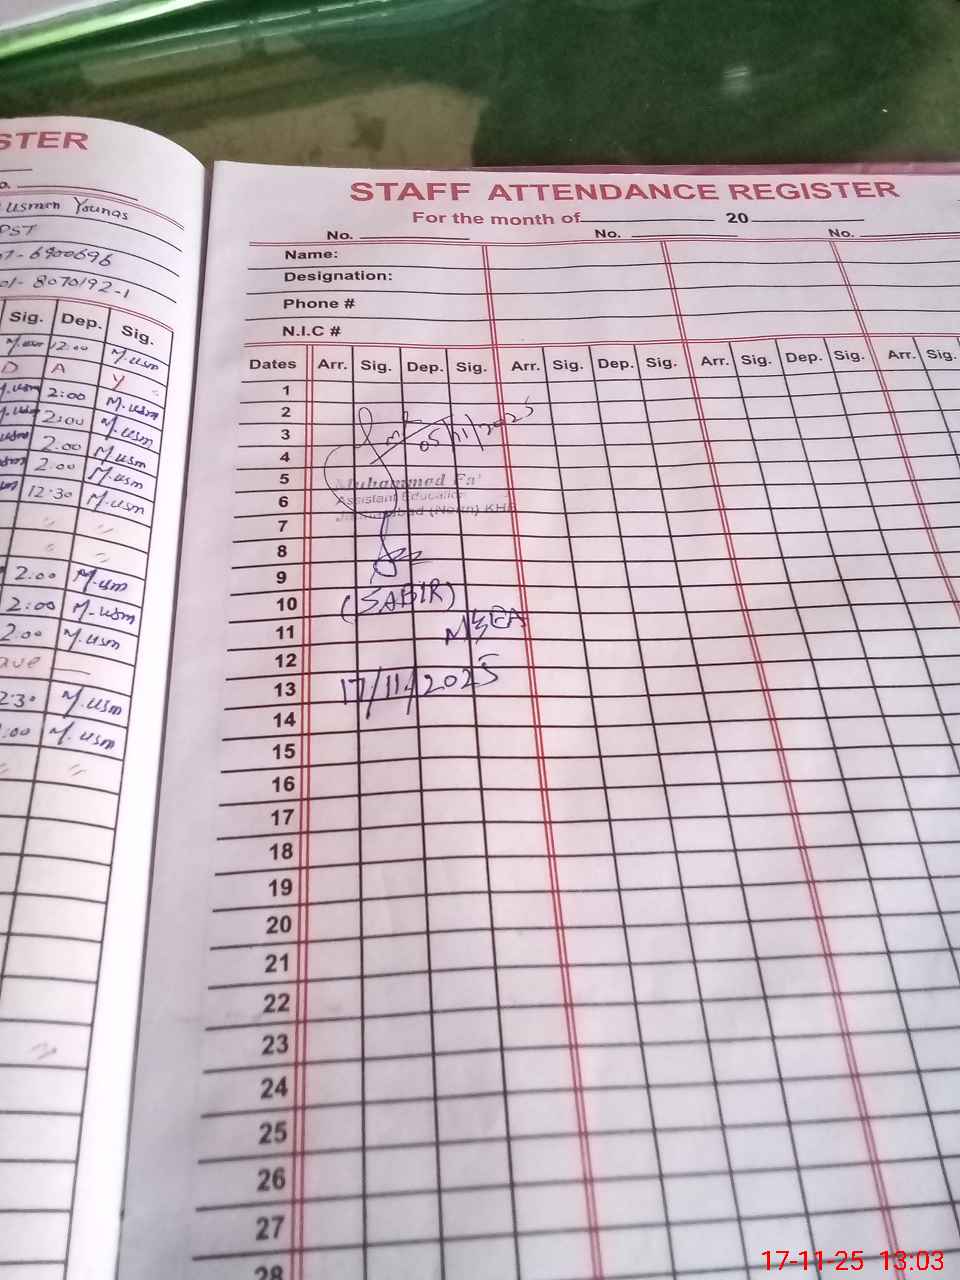 STER
Usman Younas
PST
7-6900696
01-8070192-1
Sig. Dep. Sig.
M.usm 12:00 M.usm
D A Y
M.usm 2:00 M.usm
M.usm 2:00 M.usm
usm 2.00 M.usm
usm 2.00 M.usm
12:30 M.usm
2:00 M.usm
2:00 M.usm
2.00 M.usm
ave
2:30 M.usm
:00 M.usm
STAFF ATTENDANCE REGISTER
For the month of 20
No. No. No.
Name:
Designation:
Phone #
N.I.C #
Dates Arr. Sig. Dep. Sig. Arr. Sig. Dep. Sig. Arr. Sig. Dep. Sig. Arr. Sig.
1
2
3
05/11/2025
4
5
Muhammad Fa
6
Assistant Education
(Noun) KH
7
8
9
10
(SABIR)
11
MSEA
12
13
17/11/2025
14
15
16
17
18
19
20
21
22
23
24
25
26
27
28
17-11-25 13:03